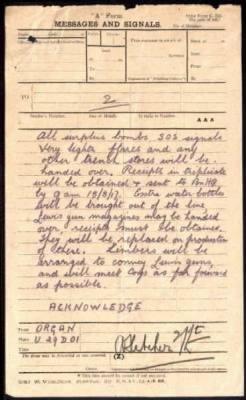 "A" Form
MESSAGES AND SIGNALS.
TO
2
Sender's Number.
Day of Month.
In reply to Number.
AAA
All surplus bombs, SOS signals
Very lights flares and any
other trench stores will be
handed over. Receipts in triplicate
will be obtained & sent to BnHQ
by 9 am 13/8/17. Extra water bottles
will be brought out of the line,
Lewis gun magazines may be handed
over receipts must be obtained.
They will be replaced on production
of these. Limbers will be
arranged to convey Lewis guns,
and will meet Coys as far forward
as possible.
ACKNOWLEDGE
From
ORGAN
Place
Time
(Z)